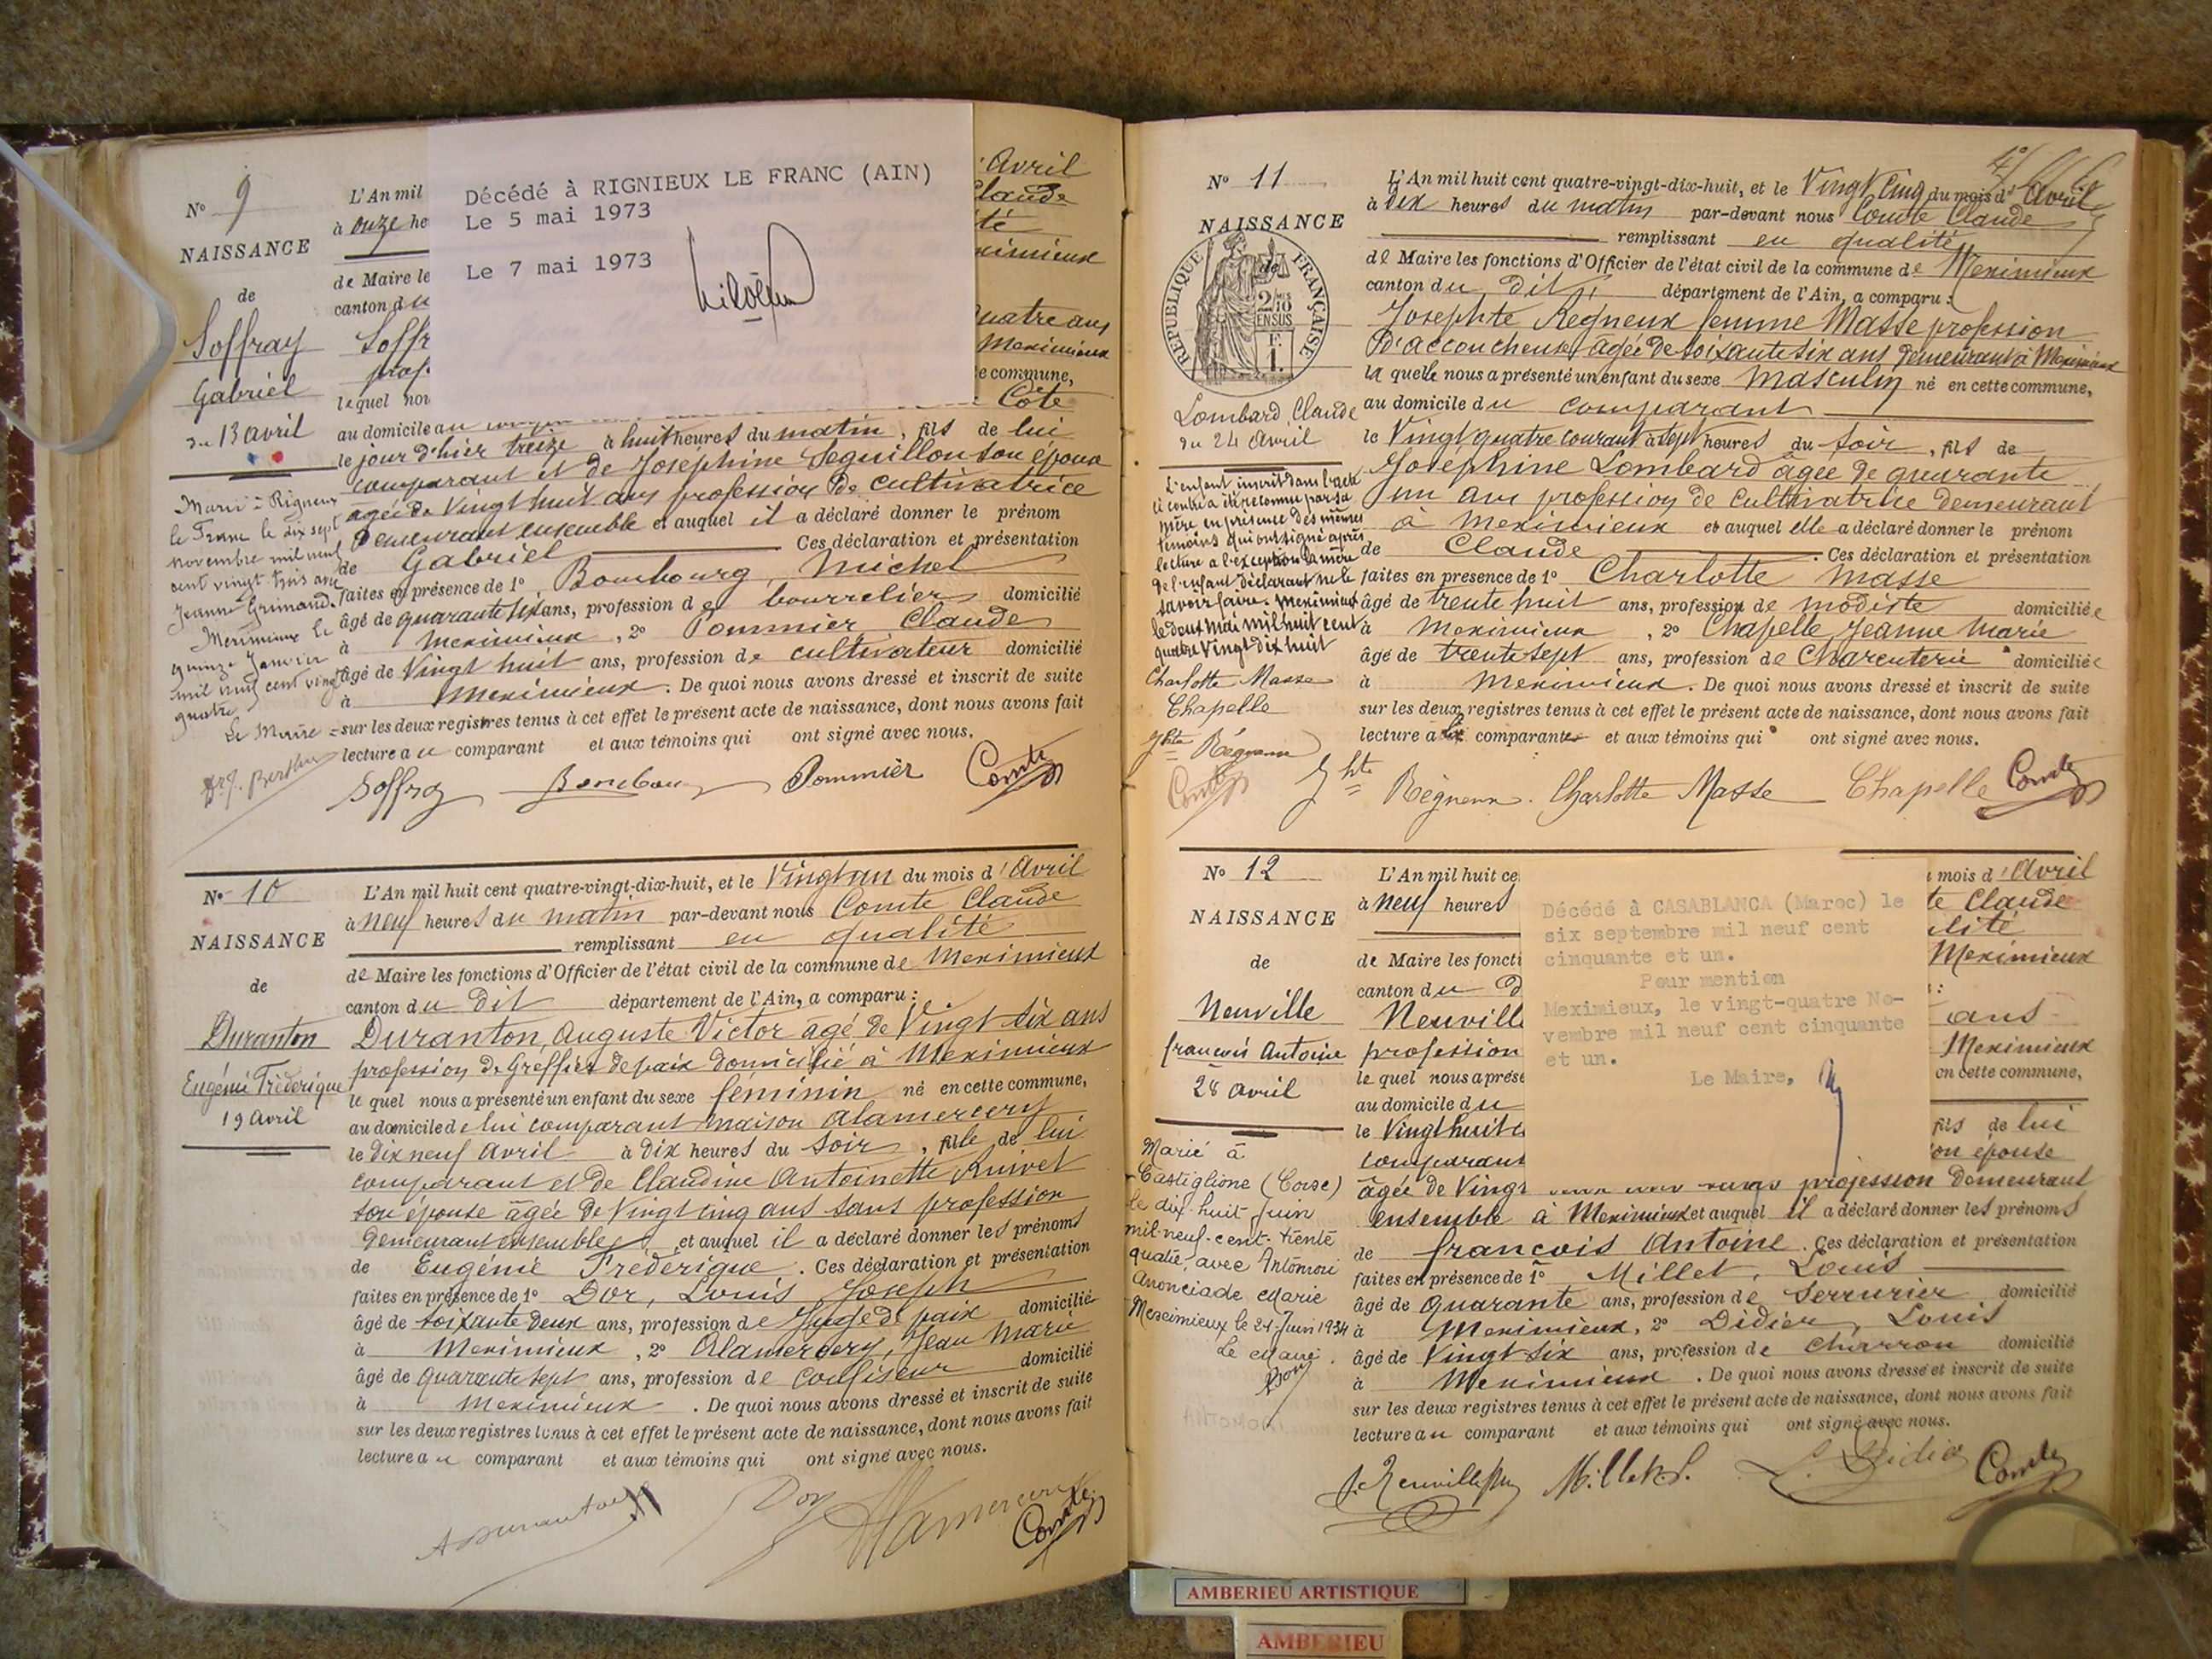 Nº 9
NAISSANCE
de
Soffray
Gabriel
du 13 avril
Marié à Rigneux
le Franc le dix sept
novembre mil neuf
cent vingt trois avec
Jeanne Grimand.
Meximieux le
quinze Janvier
mil neuf cent vingt
quatre
Le Maire
Décédé à RIGNIEUX LE FRANC (AIN)
Le 5 mai 1973
Le 7 mai 1973
L'An mil Avril
à onze he Claude
té
de Maire le ximieux
canton du
Soffr quatre ans
prof. Meximieux
lequel nou e commune,
Cote
au domicile du
le jour d'hier treize à huit heures du matin, fils de lui
comparant et de Joséphine Seguillon son épouse
agée de Vingt huit ans profession de cultivatrice
demeurant ensemble et auquel il a déclaré donner le prénom
de Gabriel Ces déclaration et présentation
faites en présence de 1º Bombourg, Michel
âgé de quarante six ans, profession de bourrelier domicilié
à Meximieux, 2º Pommier Claude
âgé de Vingt huit ans, profession de cultivateur domicilié
à Meximieux. De quoi nous avons dressé et inscrit de suite
sur les deux registres tenus à cet effet le présent acte de naissance, dont nous avons fait
lecture au comparant et aux témoins qui ont signé avec nous.
Soffray Pommier Comte
Nº 10
NAISSANCE
de
Duranton
Eugénie Frédérique
19 Avril
L'An mil huit cent quatre-vingt-dix-huit, et le Vingt un du mois d'Avril
à neuf heures du matin par-devant nous Comte Claude
remplissant en qualité
de Maire les fonctions d'Officier de l'état civil de la commune de Meximieux
canton du dit département de l'Ain, a comparu :
Duranton, Auguste Victor âgé de Vingt six ans
profession de Greffier de paix domicilié à Meximieux
le quel nous a présenté un enfant du sexe féminin né en cette commune,
au domicile de lui comparant maison Alamercery
le dix neuf Avril à dix heures du soir, fille de lui
comparant et de Claudine Antoinette
son épouse âgée de Vingt cinq ans sans profession
demeurant ensemble et auquel il a déclaré donner les prénoms
de Eugénie Frédérique. Ces déclaration et présentation
faites en présence de 1º Dor, Louis Joseph
âgé de soixante deux ans, profession de Juge de paix domicilié
à Meximieux, 2º Alamercery, Jean Marie
âgé de quarante sept ans, profession de confiseur domicilié
à Meximieux. De quoi nous avons dressé et inscrit de suite
sur les deux registres tenus à cet effet le présent acte de naissance, dont nous avons fait
lecture au comparant et aux témoins qui ont signé avec nous.
A Duranton Dor Alamercery Comte
Nº 11
NAISSANCE
de
RÉPUBLIQUE FRANÇAISE
2/10
EN SUS
F.
1.
Lombard Claude
du 24 Avril
L'enfant inscrit dans l'acte
ci contre a été reconnu par sa
mère en présence des mêmes
témoins qui ont signé après
lecture à l'exception la mère
de l'enfant déclarant ne le
savoir faire. Meximieux
le deux mai mil huit cent
quatre vingt dix huit
Charlotte Masse
Chapelle
Jphte Régneux
Comte
L'An mil huit cent quatre-vingt-dix-huit, et le Vingt cinq du mois d'Avril
à dix heures du matin par-devant nous Comte Claude
remplissant en qualité
de Maire les fonctions d'Officier de l'état civil de la commune de Meximieux
canton du dit département de l'Ain, a comparu :
Josephte Regneux femme Masse profession
d'accoucheuse, agée de soixante six ans demeurant à Meximieux
la quelle nous a présenté un enfant du sexe masculin né en cette commune,
au domicile du comparant
le Vingt quatre courant à sept heures du soir, fils de
Josephine Lombard âgée de quarante
un ans profession de cultivatrice demeurant
à Meximieux et auquel elle a déclaré donner le prénom
de Claude. Ces déclaration et présentation
faites en présence de 1º Charlotte Masse
âgé de trente huit ans, profession de modiste domiciliée
à Meximieux, 2º Chapelle Jeanne Marie
âgé de trente sept ans, profession de Charcuterie domiciliée
à Meximieux. De quoi nous avons dressé et inscrit de suite
sur les deux registres tenus à cet effet le présent acte de naissance, dont nous avons fait
lecture a comparantes et aux témoins qui ont signé avec nous.
Jphte Régneux. Charlotte Masse Chapelle Comte
Nº 12
NAISSANCE
de
Neuville
françois Antoine
28 Avril
Marié à
Castiglione (Corse)
le dix huit Juin
mil-neuf-cent-trente
quatre, avec Antomori
Anonciade Marie
Meximieux le 21 Juin 1934
Le Maire.
L'An mil huit ce mois d'Avril
à neuf heures te Claude
lité
de Maire les foncti Meximieux
canton du d :
Neuville ans
profession Meximieux
le quel nous a prése en cette commune,
au domicile du
le Vingt huit c fils de lui
comparant on épouse
Décédé à CASABLANCA (Maroc) le
six septembre mil neuf cent
cinquante et un.
Pour mention
Meximieux, le vingt-quatre No-
vembre mil neuf cent cinquante
et un.
Le Maire,
âgée de Vingt profession demeurant
ensemble à Meximieux et auquel il a déclaré donner les prénoms
de françois Antoine. Ces déclaration et présentation
faites en présence de 1º Millet, Louis
âgé de quarante ans, profession de Serrurier domicilié
à Meximieux, 2º Didier, Louis
âgé de Vingt six ans, profession de charron domicilié
à Meximieux. De quoi nous avons dressé et inscrit de suite
sur les deux registres tenus à cet effet le présent acte de naissance, dont nous avons fait
lecture au comparant et aux témoins qui ont signé avec nous.
L. Didier Comte
AMBERIEU ARTISTIQUE
AMBERIEU